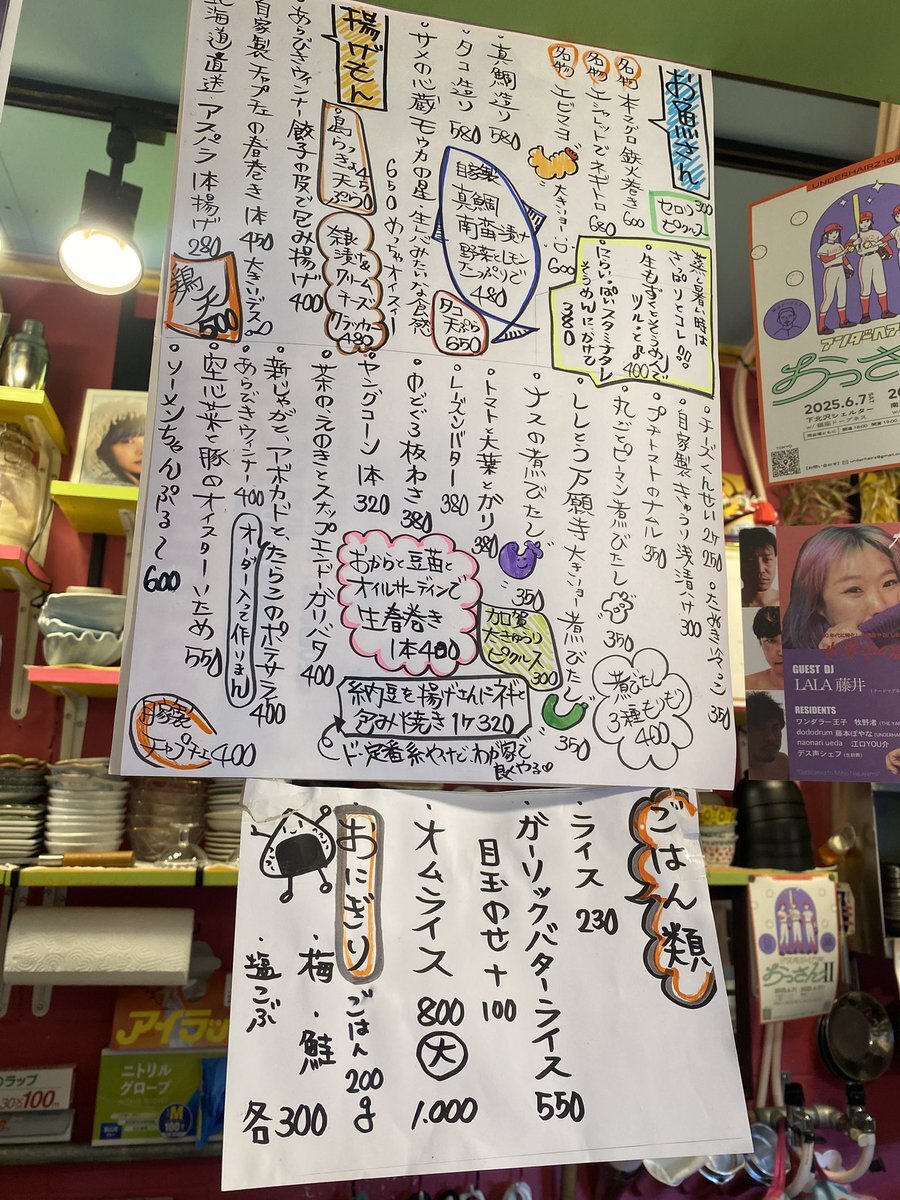 お魚さん
名物 本マグロ鉄火巻き 600
名物 エシャレットでネギトロ 680
名物 エビマヨ 大きょー 600
セロリピクルス 300
蒸し暑い時は
さっぱりとコレ!!!
・生もずくとそうめんで
ツルッと 400
・にらいっぱいスタミナタレ
そうめんにぶっかけて
380
・真鯛造り 580
・タコ造り 580
・サメの心蔵 モウカの星 生レバみたいな食感
650 めっちゃオイスィー
自家製
真鯛
南蛮漬け
野菜とレモン
たっぷりで
480
タコ天ぷら
650
揚げもん
・島らきょ天ぷら 450
奈良漬け&クリームチーズ
クラッカー 480
・あらびきウィンナー餃子の皮で包み揚げ 400
・自家製チャプチェの春巻き 1本 450 大きいデス
北海道直送 アスパラ 1本揚げ 280
鶏天
500
・チーズくんせい 2ケ 250
・たぬき冷っこ 350
・自家製きゅうり浅漬け 300
・プチトマトのナムル 350
・丸ごとピーマン煮びたし 350
・ししとう万願寺 大きぃョー 煮びたし 350
・ナスの煮びたし 350
煮びたし
3種もりもり
400
・トマトと大葉とガリ 380
・レーズンバター 380
・のどぐろ板わさ 380
・ヤングコーン 1本 320
・茶のえのきとスナップエンドウガリバタ 400
加賀
大きゅうり
ピクルス
300
おからと豆苗と
オイルサーディンで
生春巻き
1本 400
納豆を揚げさんにネギと
包み焼き 1ケ 320
ド定番系やけど、わが家で
良くやる
・新じゃがと、アボカドと、たらこのポテサラ 400
オーダー入って作りまっ
・あらびきウィンナー 400
・空芯菜と豚のオイスターいため 550
・ソーメンちゃんぷる～ 600
自家製
チャプチェ 400
ごはん類
・ライス 230
・ガーリックバターライス 550
目玉のせ +100
・オムライス 800
大 1.000
おにぎり ごはん200g
・梅 ・鮭
・塩こぶ
各300
UNDERHAIRZ10
アンダーヘア
おっさん
2025.6.7
下北沢シェルター
TOKYO
GUEST DJ
LALA 藤井
RESIDENTS
ワンダラー王子 牧野渚
dododrum 藤本ぽやな
naonari ueda 江口YOU介
デス声シェフ
おっさんII
アイラッ
ニトリル
グローブ
M
のラップ
30×100m